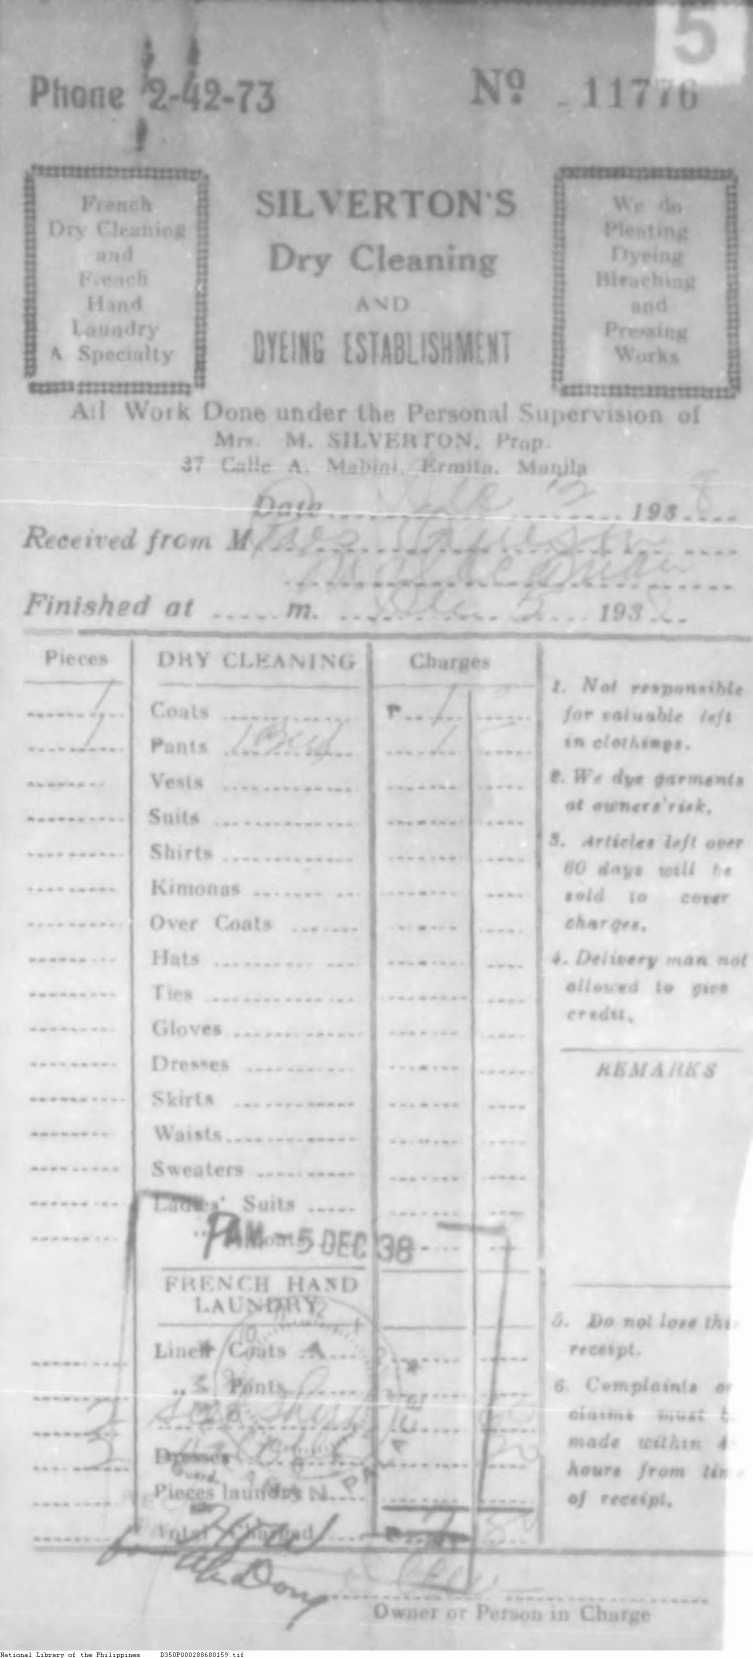 5
Phone 2-42-73
Nº 11776
French
Dry Cleaning
and
French
Hand
Laundry
A Specialty
SILVERTON'S
Dry Cleaning
AND
DYEING ESTABLISHMENT
We do
Pleating
Dyeing
Bleaching
and
Pressing
Works
All Work Done under the Personal Supervision of
Mrs. M. SILVERTON, Prop.
37 Calle A. Mabini, Ermita, Manila
Date Dec 2 1938
Received from M
Finished at m. Dec 5 193
Pieces
DRY CLEANING
Charges
1 Coats P 1
1 Pants 1
Vests
Suits
Shirts
Kimonas
Over Coats
Hats
Ties
Gloves
Dresses
Skirts
Waists
Sweaters
Ladies' Suits
PAM - 5 DEC 38
FRENCH HAND
LAUNDRY
Linen Coats
" Pants
2
2 Dresses
Pieces laundry
Total Charged P
1. Not responsible
for valuable left
in clothings.
2. We dye garments
at owners' risk.
3. Articles left over
60 days will be
sold to cover
charges.
4. Delivery man not
allowed to give
credit.
REMARKS
5. Do not lose this
receipt.
6. Complaints or
claims must
made within
hours from time
of receipt.
Owner or Person in Charge
National Library of the Philippines D350P000288680159.tif